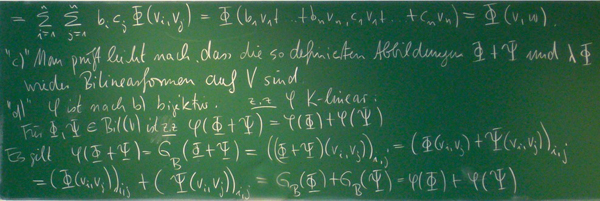 = Σ_{i=1}^{n} Σ_{j=1}^{n} b_i c_j Φ(v_i, v_j) = Φ(b_1 v_1 + ... + b_n v_n, c_1 v_1 + ... + c_n v_n) = Φ(v, w).
"c)" Man prüft leicht nach, dass die so definierten Abbildungen Φ + Ψ und λΦ
wieder Bilinearformen auf V sind.
"d)" φ ist nach b) bijektiv. z.z φ K-linear.
Für Φ, Ψ ∈ Bil(V) ist z.z φ(Φ + Ψ) = φ(Φ) + φ(Ψ)
Es gilt φ(Φ + Ψ) = G_B(Φ + Ψ) = ((Φ + Ψ)(v_i, v_j))_{i,j} = (Φ(v_i, v_j) + Ψ(v_i, v_j))_{i,j}
= (Φ(v_i, v_j))_{i,j} + (Ψ(v_i, v_j))_{i,j} = G_B(Φ) + G_B(Ψ) = φ(Φ) + φ(Ψ)